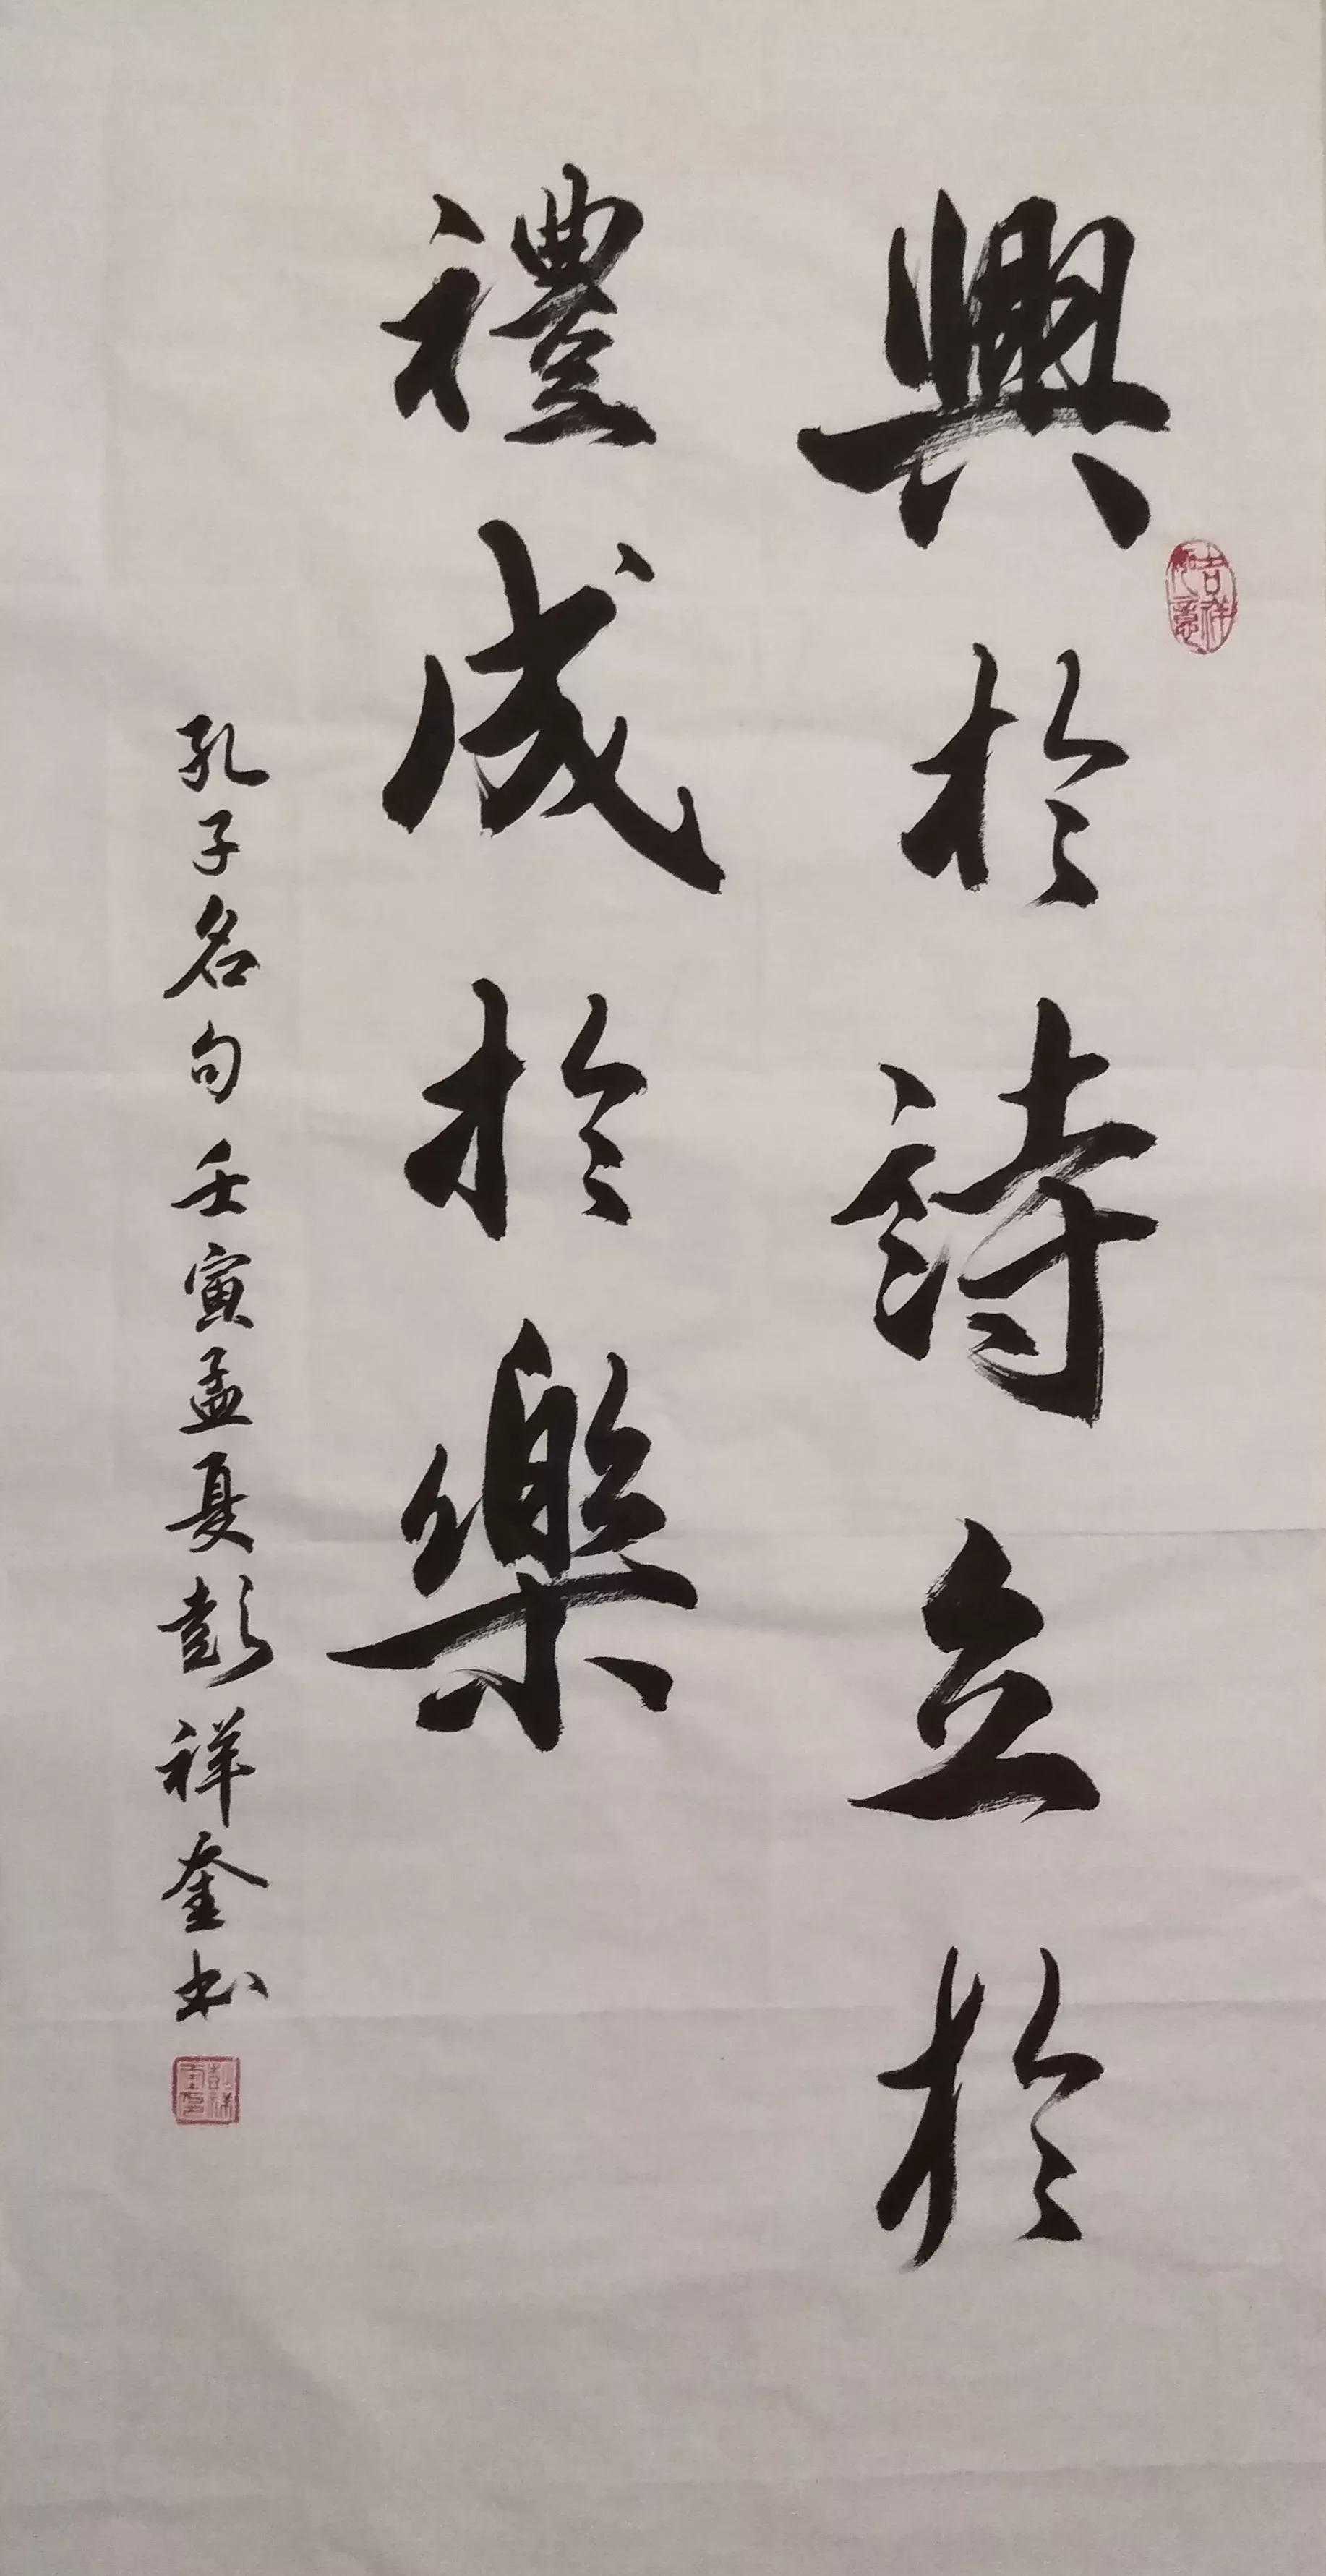 興於詩立於
禮成於樂
孔子名句壬寅孟夏彭祥奎书
吉祥如意